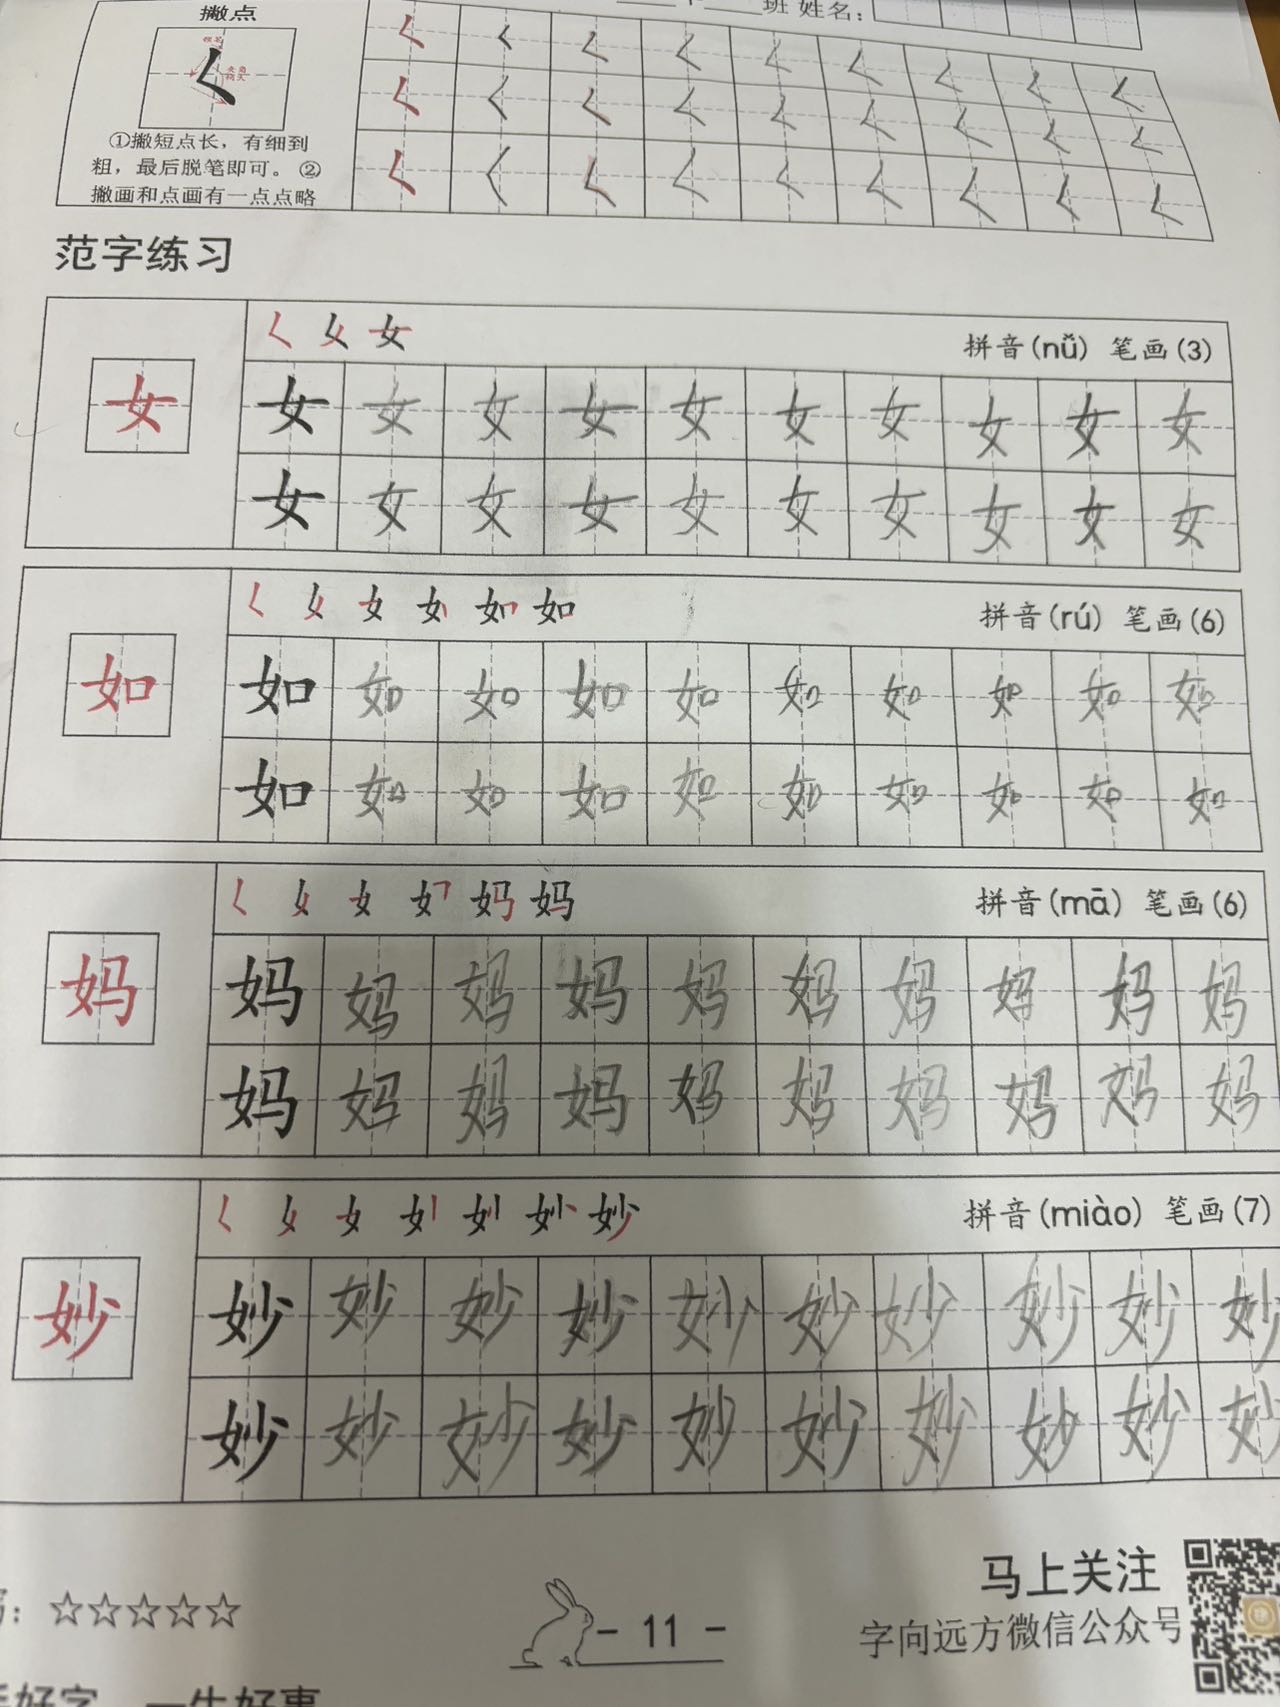 撇点
班 姓名：
①撇短点长，有细到
粗，最后脱笔即可。②
撇画和点画有一点点略
范字练习
女 拼音(nǚ) 笔画(3)
女 女 女 女 女 女 女 女 女 女 女
女 女 女 女 女 女 女 女 女 女
拼音(rú) 笔画(6)
如 如 如 如 如 如 如 如 如 如 如
如 如 如 如 如 如 如 如 如 如
妈 拼音(mā) 笔画(6)
妈 妈 妈 妈 妈 妈 妈 妈 妈 妈 妈
妈 妈 妈 妈 妈 妈 妈 妈 妈 妈
妙 拼音(miào) 笔画(7)
妙 妙 妙 妙 妙 妙 妙 妙 妙 妙 妙
妙 妙 妙 妙 妙 妙 妙 妙 妙 妙
：☆☆☆☆☆
- 11 -
马上关注
字向远方微信公众号
好字 一生好事